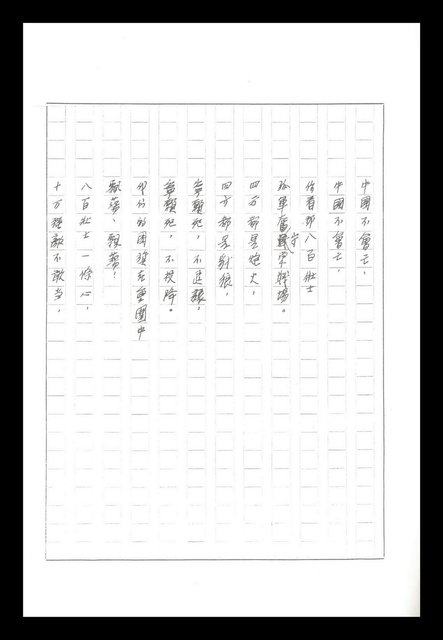 中國不會亡，
中國不會亡，
你看那八百壯士
孤軍奮守東戰場。
四方都是炮火，
四方都是豺狼，
寧願死，不退讓，
寧願死，不投降。
我們的國旗在重圍中
飄蕩，飄蕩，
八百壯士一條心，
十万強敵不敢当，